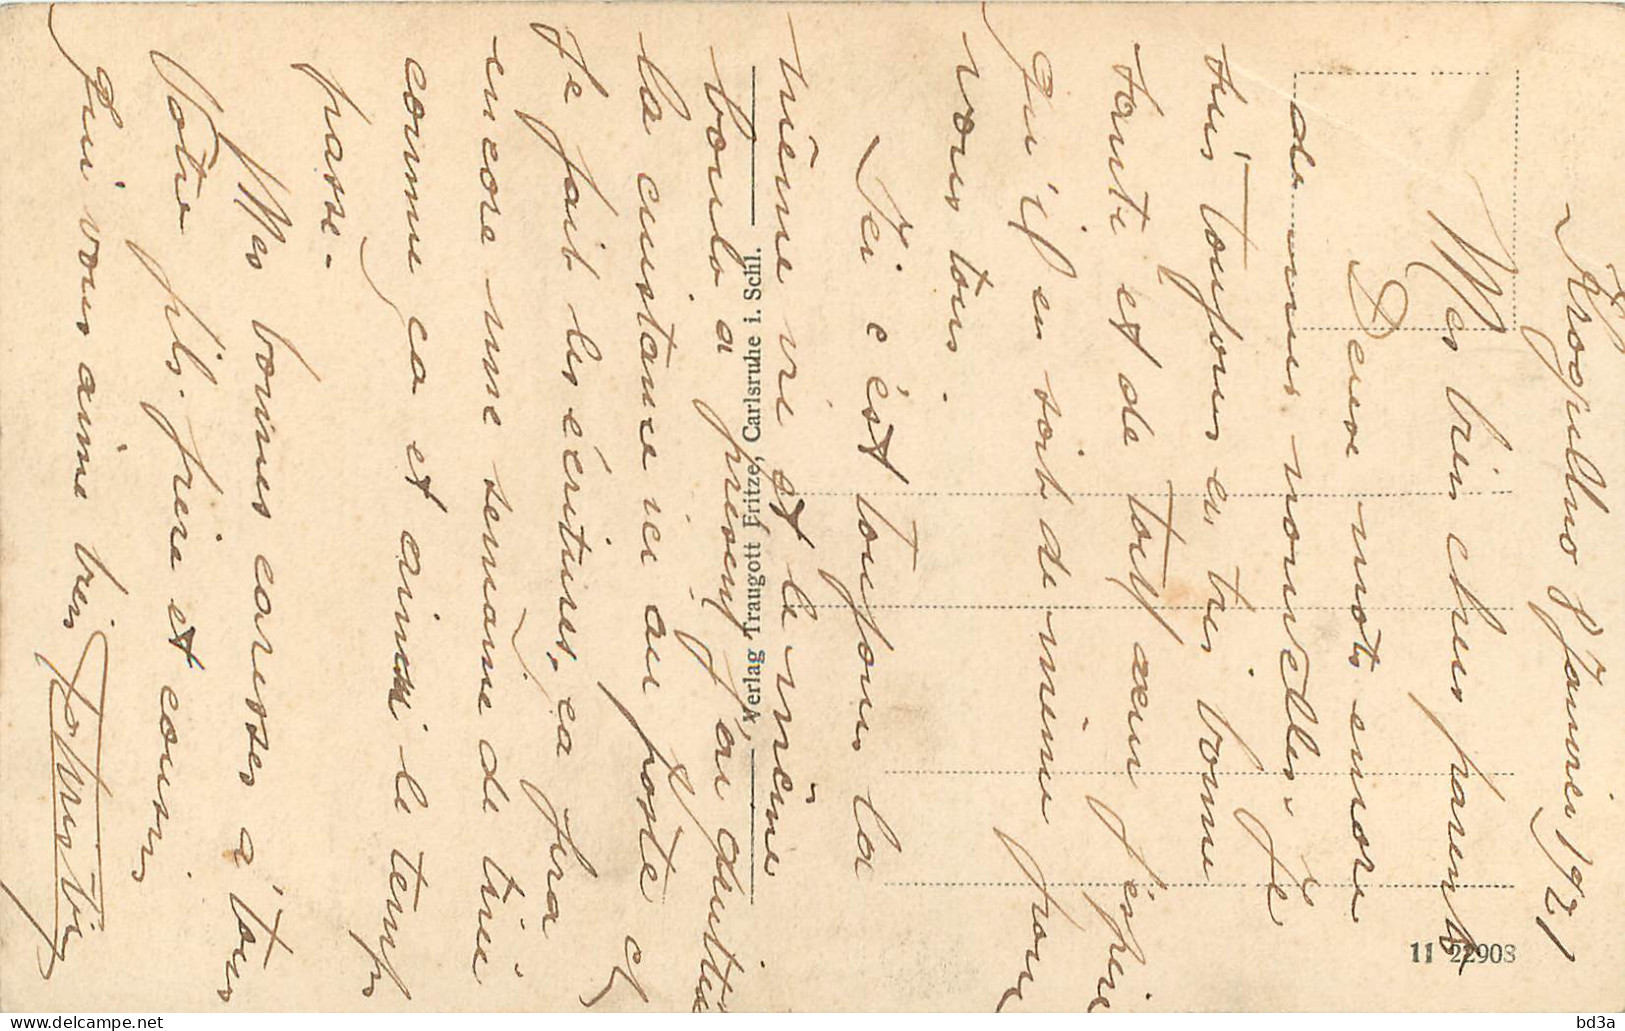 Krogulno 8 Janvier 1921
Mes bien chers parents
Deux mots encore
de mes nouvelles. Je
suis toujours en tres bonne
sante et de tout cœur j'éspère
qu'il en soit de même pour
vous tous.
Ici c'ést toujours la
même vie et le même
boulo a présent j'ai quittée
la cuistance ici au poste et
Je fait les écritures, ca fera
encore une semaine de tirée
comme ca et ainsi le temps
passe.
Mes bonnes caresses a tous
Votre fils. frère et cousin
Qui vous aime bien
Verlag Traugott Fritze, Carlsruhe i. Schl.
11 22908
bd3a